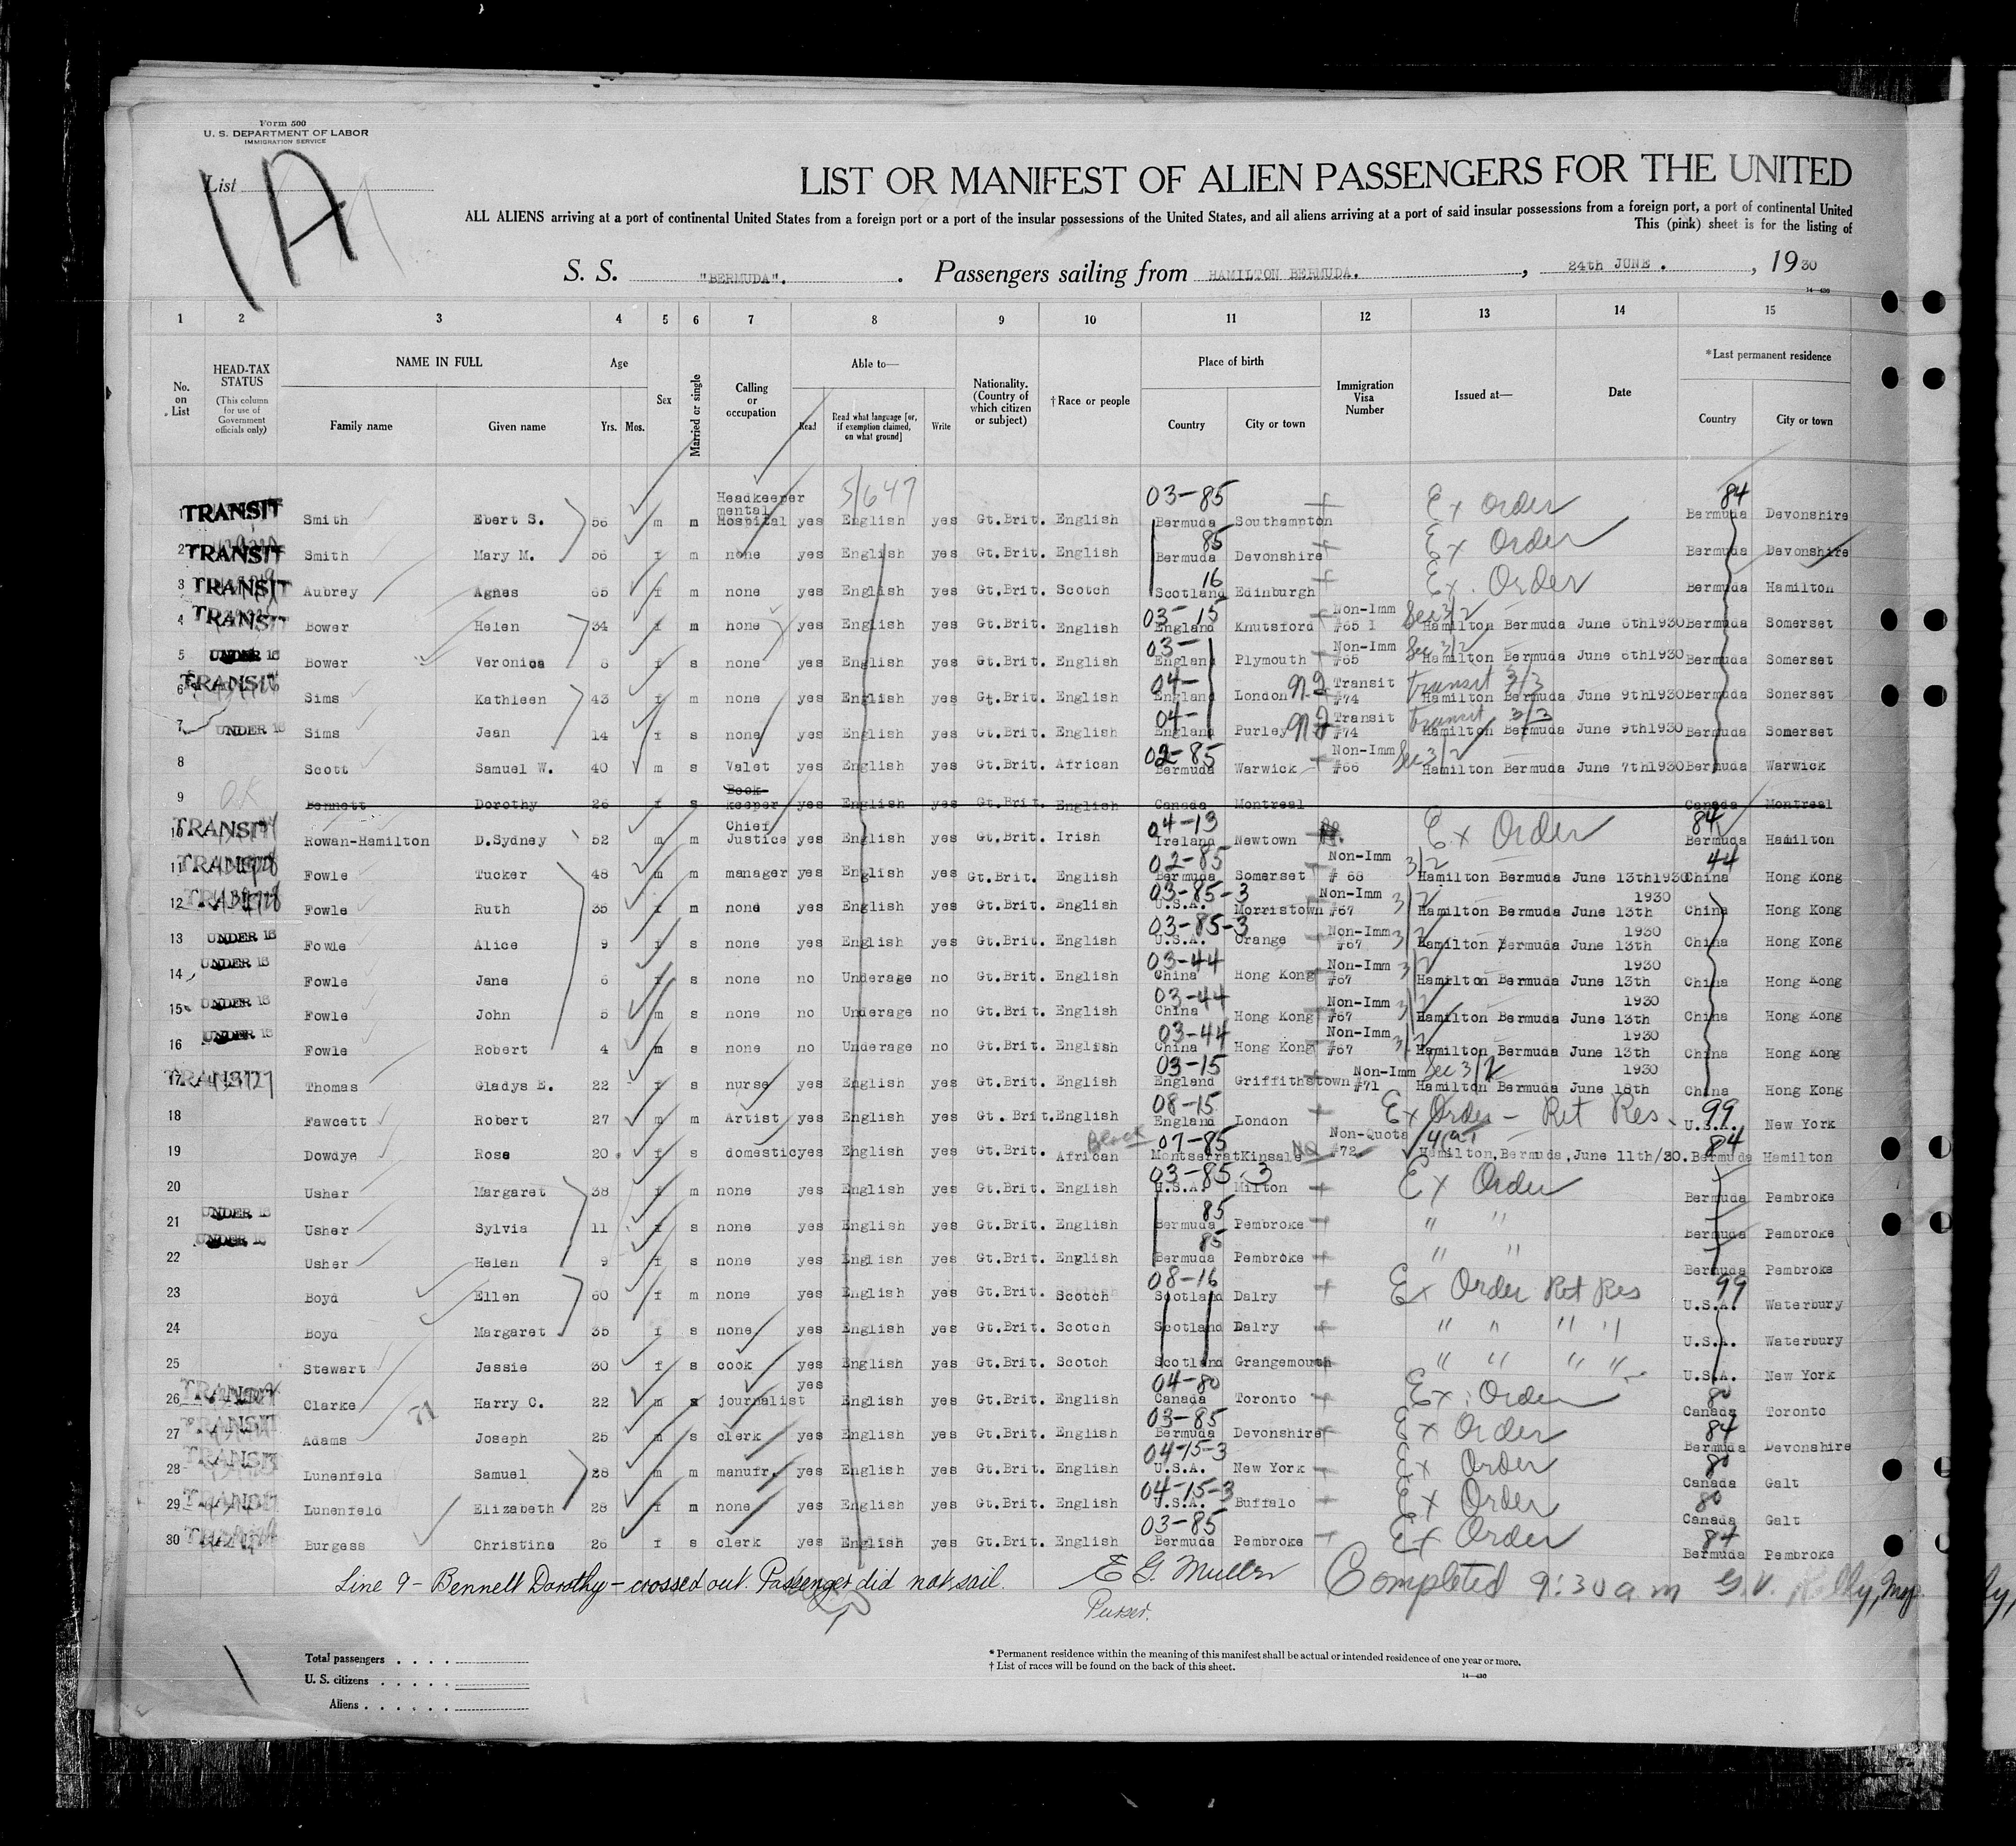 Form 500
U. S. DEPARTMENT OF LABOR
IMMIGRATION SERVICE
List
1A
LIST OR MANIFEST OF ALIEN PASSENGERS FOR THE UNITED
ALL ALIENS arriving at a port of continental United States from a foreign port or a port of the insular possessions of the United States, and all aliens arriving at a port of said insular possessions from a foreign port, a port of continental United
This (pink) sheet is for the listing of
S. S. "BERMUDA". Passengers sailing from HAMILTON BERMUDA. , 24th JUNE . , 1930
14—430
1 2 3 4 5 6 7 8 9 10 11 12 13 14 15
No. on List
HEAD-TAX STATUS (This column for use of Government officials only)
NAME IN FULL Family name Given name
Age Yrs. Mos.
Sex
Married or single
Calling or occupation
Able to— Read Read what language [or, if exemption claimed, on what ground] Write
Nationality. (Country of which citizen or subject)
†Race or people
Place of birth Country City or town
Immigration Visa Number
Issued at—
Date
*Last permanent residence Country City or town
5/647
1 TRANSIT Smith Ebert S. 56 m m Headkeeper mental Hospital yes English yes Gt.Brit. English 03-85 Bermuda Southampton Ex Order 84 Bermuda Devonshire
2 TRANSIT Smith Mary M. 56 f m none yes English yes Gt.Brit. English 85 Bermuda Devonshire Ex Order Bermuda Devonshire
3 TRANSIT Aubrey Agnes 65 f m none yes English yes Gt.Brit. Scotch 16 Scotland Edinburgh Ex. Order Bermuda Hamilton
4 TRANSIT Bower Helen 34 f m none yes English yes Gt.Brit. English 03-15 England Knutsford Non-Imm #65 I Sec 3/2 Hamilton Bermuda June 6th1930 Bermuda Somerset
5 UNDER 16 Bower Veronica 8 f s none yes English yes Gt.Brit. English 03- England Plymouth Non-Imm #65 Sec 3/2 Hamilton Bermuda June 6th1930 Bermuda Somerset
6 TRANSIT Sims Kathleen 43 f m none yes English yes Gt.Brit. English 04- England London Transit #74 transit 3/3 Hamilton Bermuda June 9th1930 Bermuda Somerset
7 UNDER 16 Sims Jean 14 f s none yes English yes Gt.Brit. English 04- England Purley Transit #74 transit 3/3 Hamilton Bermuda June 9th1930 Bermuda Somerset
8 Scott Samuel W. 40 m s Valet yes English yes Gt.Brit. African 02-85 Bermuda Warwick Non-Imm #66 Sec 3/2 Hamilton Bermuda June 7th1930 Bermuda Warwick
9 OK Bennett Dorothy 26 f s Book-keeper yes English yes Gt.Brit. English Canada Montreal Canada Montreal
10 TRANSIT Rowan-Hamilton D.Sydney 52 m m Chief Justice yes English yes Gt.Brit. Irish 04-13 Ireland Newtown Ex Order 84 Bermuda Hamilton
11 TRANSIT Fowle Tucker 48 m m manager yes English yes Gt.Brit. English 02-85 Bermuda Somerset Non-Imm # 68 3/2 Hamilton Bermuda June 13th1930 44 China Hong Kong
12 TRANSIT Fowle Ruth 35 f m none yes English yes Gt.Brit. English 03-85-3 U.S.A. Morristown Non-Imm #67 3/2 Hamilton Bermuda June 13th 1930 China Hong Kong
13 UNDER 16 Fowle Alice 9 f s none yes English yes Gt.Brit. English 03-85-3 U.S.A. Orange Non-Imm #67 3/2 Hamilton Bermuda June 13th 1930 China Hong Kong
14 UNDER 16 Fowle Jane 6 f s none no Underage no Gt.Brit. English 03-44 China Hong Kong Non-Imm #67 3/2 Hamilton Bermuda June 13th 1930 China Hong Kong
15 UNDER 16 Fowle John 5 m s none no Underage no Gt.Brit. English 03-44 China Hong Kong Non-Imm #67 3/2 Hamilton Bermuda June 13th 1930 China Hong Kong
16 UNDER 16 Fowle Robert 4 m s none no Underage no Gt.Brit. English 03-44 China Hong Kong Non-Imm #67 3/2 Hamilton Bermuda June 13th 1930 China Hong Kong
17 TRANSIT Thomas Gladys E. 22 f s nurse yes English yes Gt.Brit. English 03-15 England Griffithstown Non-Imm #71 Sec 3/2 Hamilton Bermuda June 18th 1930 China Hong Kong
18 Fawcett Robert 27 m m Artist yes English yes Gt. Brit. English 08-15 England London Ex Order - Ret Res. 99 U.S.A. New York
19 Dowdye Rose 20 f s domestic yes English yes Gt.Brit. Black African 07-85 Montserrat Kinsale NQ Non-Quota #72 Hamilton,Bermuda,June 11th/30. 84 Bermuda Hamilton
20 Usher Margaret 38 f m none yes English yes Gt.Brit. English 03-85-3 U.S.A. Milton Ex Order Bermuda Pembroke
21 UNDER 16 Usher Sylvia 11 f s none yes English yes Gt.Brit. English 85 Bermuda Pembroke " " Bermuda Pembroke
22 UNDER 16 Usher Helen 9 f s none yes English yes Gt.Brit. English 85 Bermuda Pembroke " " Bermuda Pembroke
23 Boyd Ellen 60 f m none yes English yes Gt.Brit. Scotch 08-16 Scotland Dalry Ex Order Ret Res 99 U.S.A. Waterbury
24 Boyd Margaret 35 f s none yes English yes Gt.Brit. Scotch Scotland Dalry " " " " U.S.A. Waterbury
25 Stewart Jessie 30 f s cook yes English yes Gt.Brit. Scotch Scotland Grangemouth " " " " U.S.A. New York
26 TRANSIT Clarke 71 Harry C. 22 m s journalist yes English yes Gt.Brit. English 04-80 Canada Toronto Ex. Order 80 Canada Toronto
27 TRANSIT Adams Joseph 25 m s clerk yes English yes Gt.Brit. English 03-85 Bermuda Devonshire Ex Order 84 Bermuda Devonshire
28 TRANSIT Lunenfeld Samuel 28 m m manufr. yes English yes Gt.Brit. English 04-15-3 U.S.A. New York Ex Order 80 Canada Galt
29 TRANSIT Lunenfeld Elizabeth 28 f m none yes English yes Gt.Brit. English 04-15-3 U.S.A. Buffalo Ex Order 80 Canada Galt
30 TRANSIT Burgess Christina 26 f s clerk yes English yes Gt.Brit. English 03-85 Bermuda Pembroke Ex Order 84 Bermuda Pembroke
Line 9 - Bennett Dorothy - crossed out. Passenger did not sail. E G Muller Completed 9:30 a.m
Purser.
Total passengers
U. S. citizens
Aliens
* Permanent residence within the meaning of this manifest shall be actual or intended residence of one year or more.
† List of races will be found on the back of this sheet.
14—430